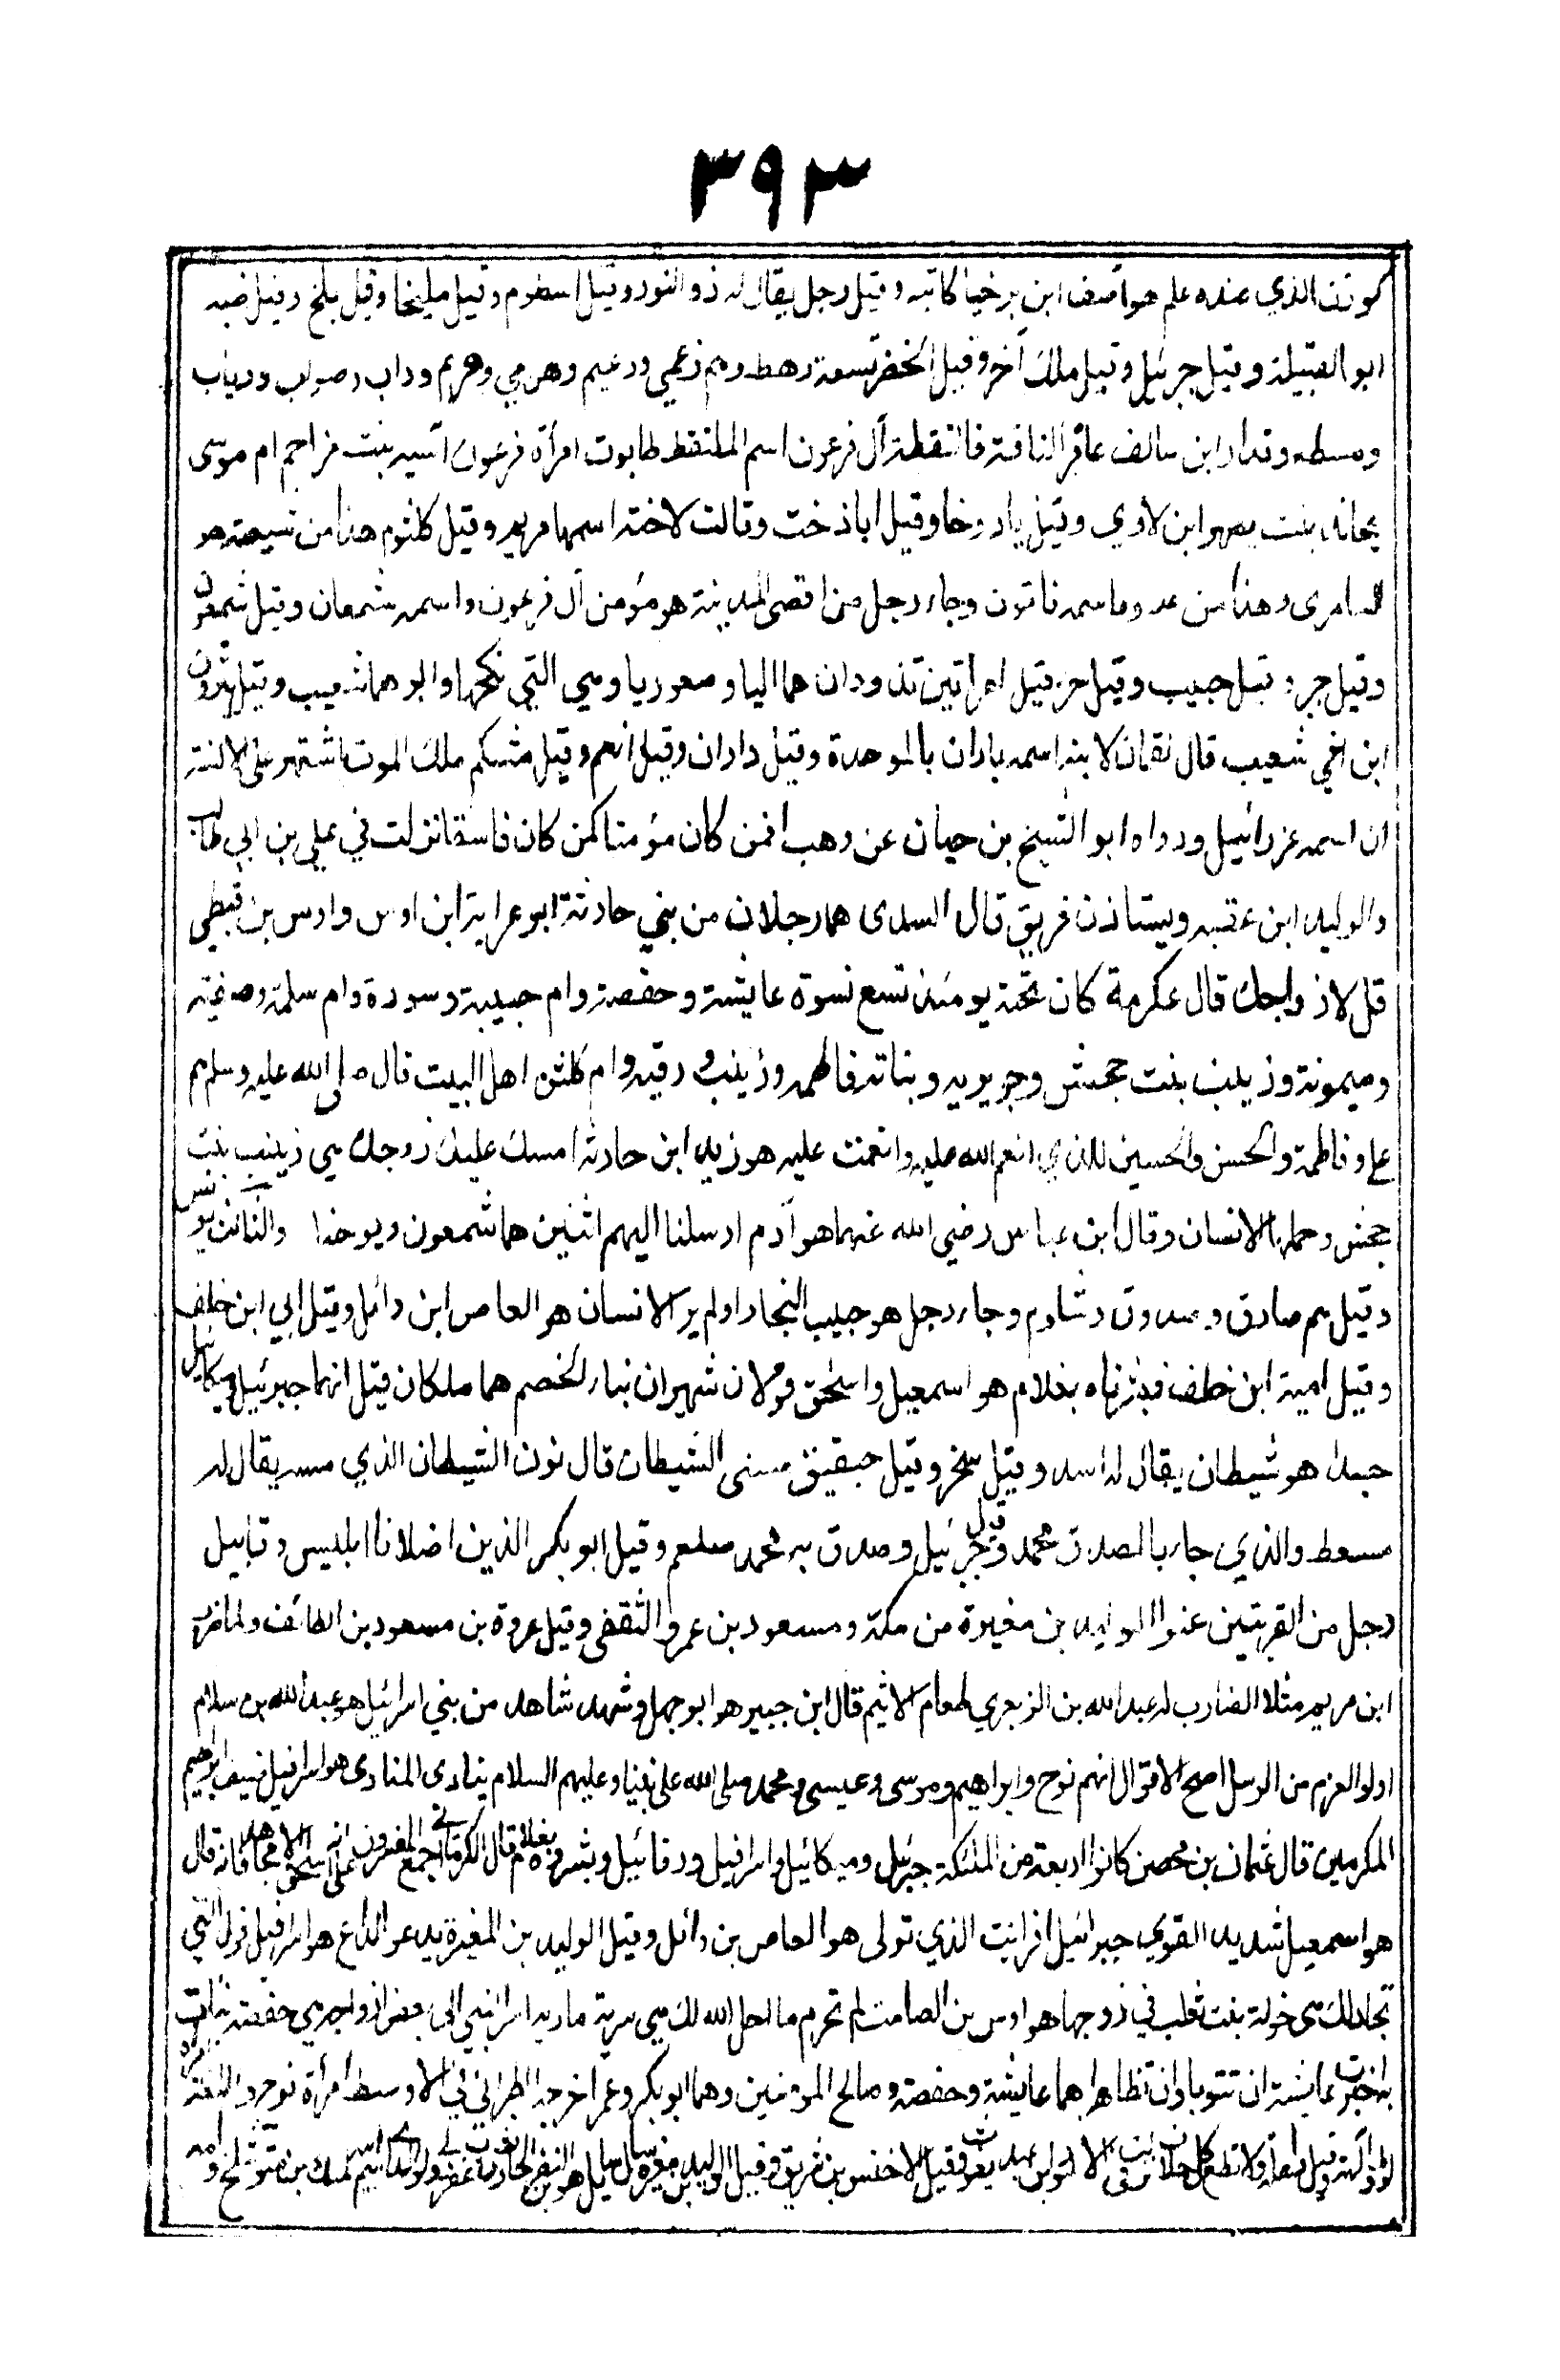 ٣٩٣
كوتن الذي عنده علم هو آصف ابن برخيا كاتبه وقيل رجل يقال له ذو النور وقيل اسطوم وقيل مليخا وقيل بلخ وقيل ضبه
ابو القبيلة وقيل جبرئيل وقيل ملك آخر وقيل الخضر تسعة رهط وهم زعمي ورعيم وهرمي وهريم وداب وصواب ورياب
ومسطه وقدار ابن سالف عاقر الناقة فالتقطه آل فرعون اسم الملتقط طابوت امرأة فرعون آسيه بنت مزاحم ام موسى
يحانه بنت يصهر ابن لاوي وقيل يادوخا وقيل اباذخت وقالت لاخته اسمها مريم وقيل كلثوم هذا من شيعته هو
السامرى وهذا من عدوه اسمه فاتون وجاء رجل من اقصى المدينة هو مؤمن آل فرعون واسمه شمعان وقيل شمعون
وقيل جبر وقيل حبيب وقيل حزقيل امراتين تذودان هما اليا وصعوريا وهي التي نكحها وابوهما شعيب وقيل يثرون
ابن اخي شعيب قال لقمان لابنه اسمه باران بالموحدة وقيل داران وقيل انعم وقيل مشكم ملك الموت اشتهر على الالسنة
ان اسمه عزرائيل ورواه ابو الشيخ بن حيان عن وهب افمن كان مؤمنا كمن كان فاسقا نزلت في علي بن ابي طالب
والوليد ابن عقبه ويستاذن فريق قال السدى هما رجلان من بني حارثة ابو عرابة ابن اوس واوس بن قيظي
قل لازواجك قال عكرمة كان تحته يومئذ تسع نسوة عايشة وحفصة وام حبيبة وسودة وام سلمة وصفيه
وميمونة وزينب بنت جحش وجويريه وبناته فاطمه وزينب ورقيه وام كلثوم اهل البيت قال صلى الله عليه وسلم هم
علي وفاطمة والحسن والحسين للذي انعم الله عليه وانعمت عليه هو زيد ابن حارثه امسك عليك زوجك هي زينب بنت
جحش وحملها الانسان وقال ابن عباس رضي الله عنهما هو آدم ارسلنا اليهم اثنين هما شمعون ويوحنا والثالث بولس
وقيل هم صادق وصدوق وشلوم وجاء رجل هو حبيب النجار اولم ير الانسان هو العاص ابن وائل وقيل ابي ابن خلف
وقيل امية ابن خلف فبشرناه بغلام هو اسمعيل واسحق قولان شهيران نباء الخصم هما ملكان قيل انهما جبرئيل وميكائيل
جسدا هو شيطان يقال له اسد وقيل صخر وقيل حبقيق مسنى الشيطان قال نون الشيطان الذي مسه يقال له
مسعط والذي جاء بالصدق محمد وقيل جبرئيل وصدق به محمد صلعم وقيل ابو بكر الذين اضلانا ابليس وقابيل
رجل من القريتين عنوا الوليد بن مغيرة من مكة ومسعود بن عمرو الثقفى وقيل عروة بن مسعود بن الطائف ولما ضرب
ابن مريم مثلا الضارب له عبد الله بن الزبعري طعام الاثيم قال ابن جبير هو ابو جهل وشهد شاهد من بني اسرائيل هو عبد الله بن سلام
اولو العزم من الرسل اصح الاقوال انهم نوح وابراهيم وموسى وعيسى ومحمد صلى الله على نبينا وعليهم السلام ينادى المنادى هو اسرافيل ضيف ابراهيم
المكرمين قال عثمان بن محصن كانوا اربعة من الملئكة جبرئيل وميكائيل واسرافيل ورفائيل وبشروه بغلام قال الكرماني اجمع المفسرون على انه اسحق الا مجاهدا فانه قال
هو اسمعيل شديد القوي جبرائيل افرايت الذي تولى هو العاص بن وائل وقيل الوليد بن المغيرة يدعو الداع هو اسرافيل قول التي
تجادلك هي خولة بنت ثعلب في زوجها هو اوس بن الصامت لم تحرم ما احل الله لك هي سرية ماريه اسر النبي الى بعض ازواجه هي حفصة نبأت
به اخبرت عايشة ان تتوبا وان تظاهرا هما عايشة وحفصة وصالح المومنين وهما ابو بكر وعمر اخرجه الطبراني في الاوسط امرأة نوح والعة
لوط والهة وقيل ولا تطع كل حلاف نزلت في الاسود بن عبد يغوث وقيل الاخنس بن شريق وقيل الوليد بن مغيره سال سايل هو النضر بن الحارث رب اغفر لي ولوالدي اسم ابيه لمك بن متوشلخ وامه